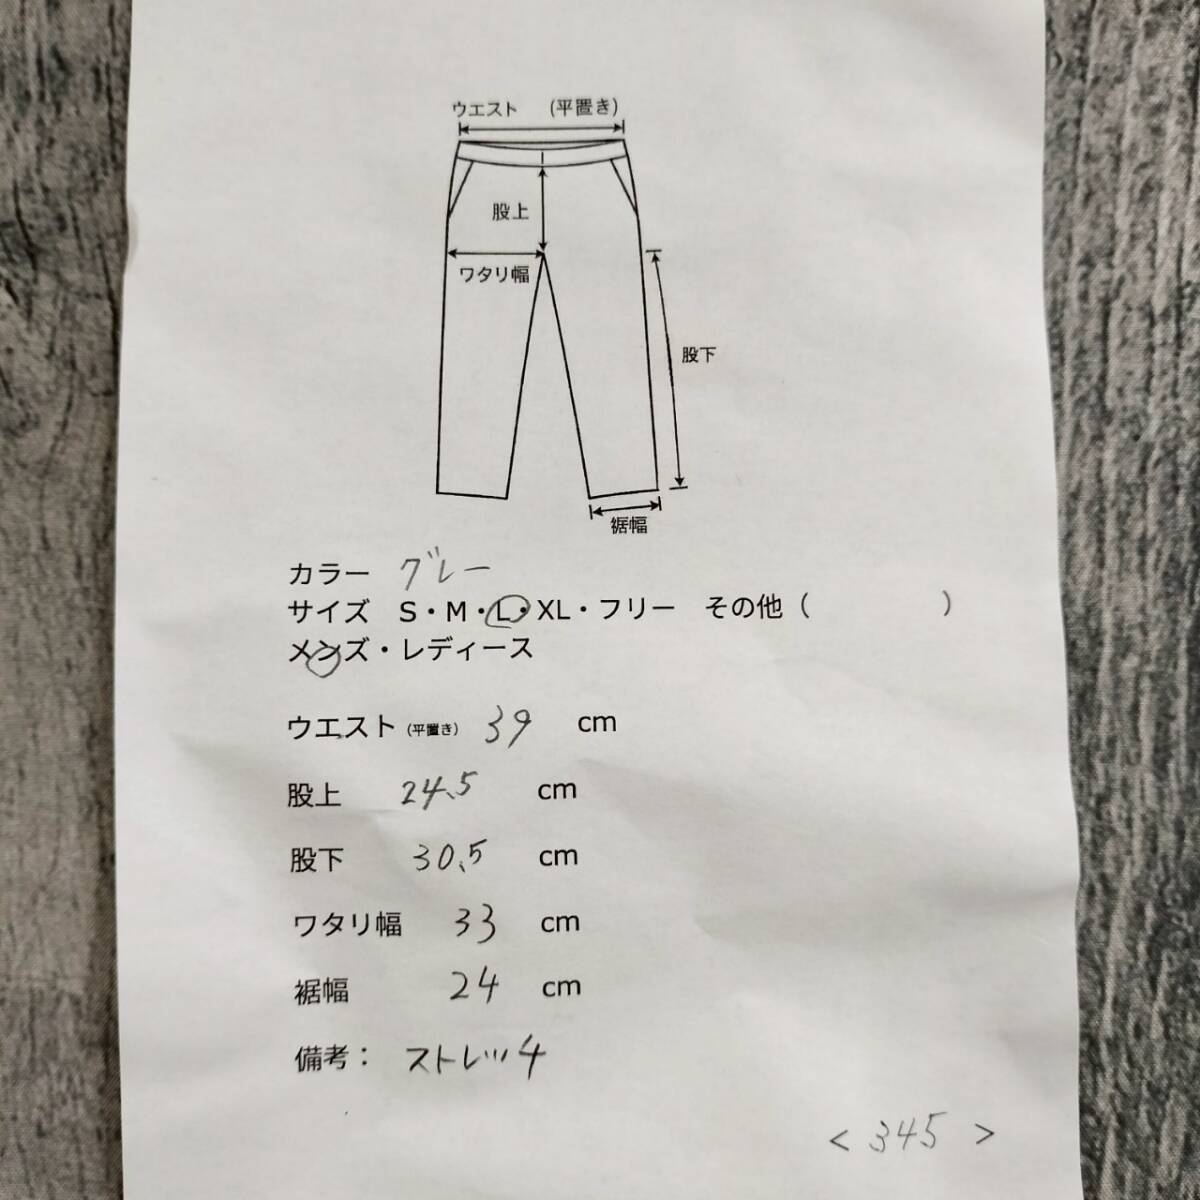 ウエスト (平置き)
股上
ワタリ幅
股下
裾幅
カラー グレー
サイズ S・M・L・XL・フリー その他（ ）
メンズ・レディース
ウエスト（平置き） 39 cm
股上 24.5 cm
股下 30.5 cm
ワタリ幅 33 cm
裾幅 24 cm
備考： ストレッチ
< 345 >